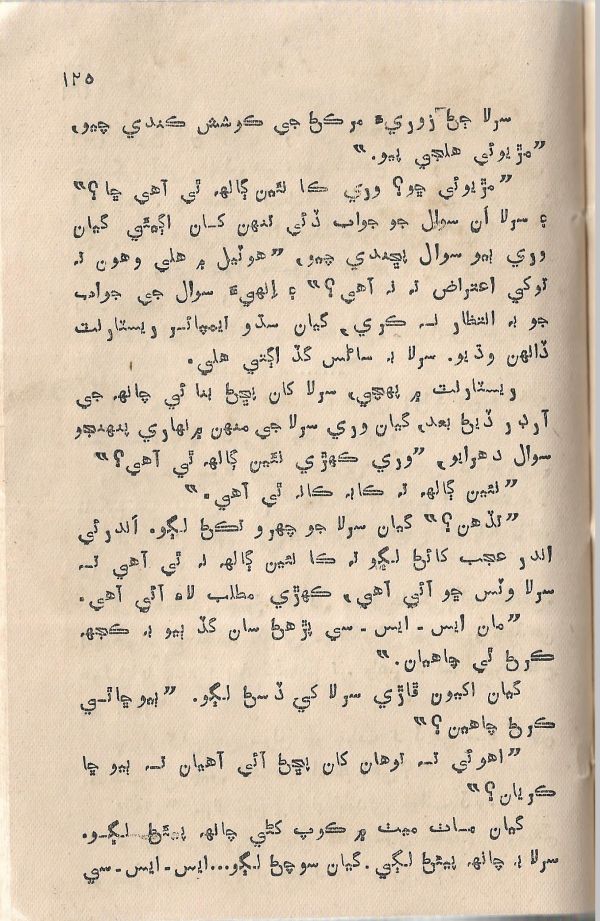 ١٢٥
سرلا ڄڻ زوريءَ مرڪڻ جي ڪوشش ڪندي چيو،
”مڙيوئي هلجي پيو.“
”مڙيوئي ڇو؟ وري ڪا نئين ڳالهہ ٿي آهي ڇا؟“
۽ سرلا اُن سوال جو جواب ڏئي تنهن کان اڳيئي گيان
وري ٻيو سوال پڇندي چيو، ”هوٽيل ۾ هلي وهون تہ
توکي اعتراض تہ نہ آهي؟“ ۽ اِنهيءَ سوال جي جواب
جو بہ انتظار نہ ڪري، گيان سڌو ايمپائر ريسٽارنٽ
ڏانهن وڌيو. سرلا بہ ساڻس گڏ اڳتي هلي.
ريسٽارنٽ ۾ پهچي، سرلا کان پڇڻ بنائي چانهہ جي
آرڊر ڏيڻ بعد، گيان وري سرلا جي منهن ۾ نهاري پنهنجو
سوال دهرايو، ”وري ڪهڙي نئين ڳالهہ ٿي آهي؟“
”نئين ڳالهہ تہ ڪابہ ڪانہ ٿي آهي.“
”تڏهن؟“ گيان سرلا جو چهرو تڪڻ لڳو. اندرئي
اندر عجب کائڻ لڳو تہ ڪا نئين ڳالهہ نہ ٿي آهي تہ
سرلا وٽس ڇو آئي آهي، ڪهڙي مطلب لاءِ آئي آهي.
”مان ايس - ايس - سي پڙهڻ سان گڏ ٻيو بہ ڪجهہ
ڪرڻ ٿي چاهيان.“
گيان اکيون ڦاڙي سرلا کي ڏسڻ لڳو. ”ٻيو ڇاٿي
ڪرڻ چاهين؟“
”اهوئي تہ توهان کان پڇڻ آئي آهيان تہ ٻيو ڇا
ڪريان؟“
گيان مات ميٺ ۾ ڪوپ کڻي چانهہ پيئڻ لڳو.
سرلا بہ چانهہ پيئڻ لڳي. گيان سوچڻ لڳو...ايس - ايس - سي